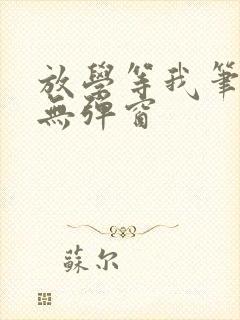 放學等我筆
無彈窗
蘇尔